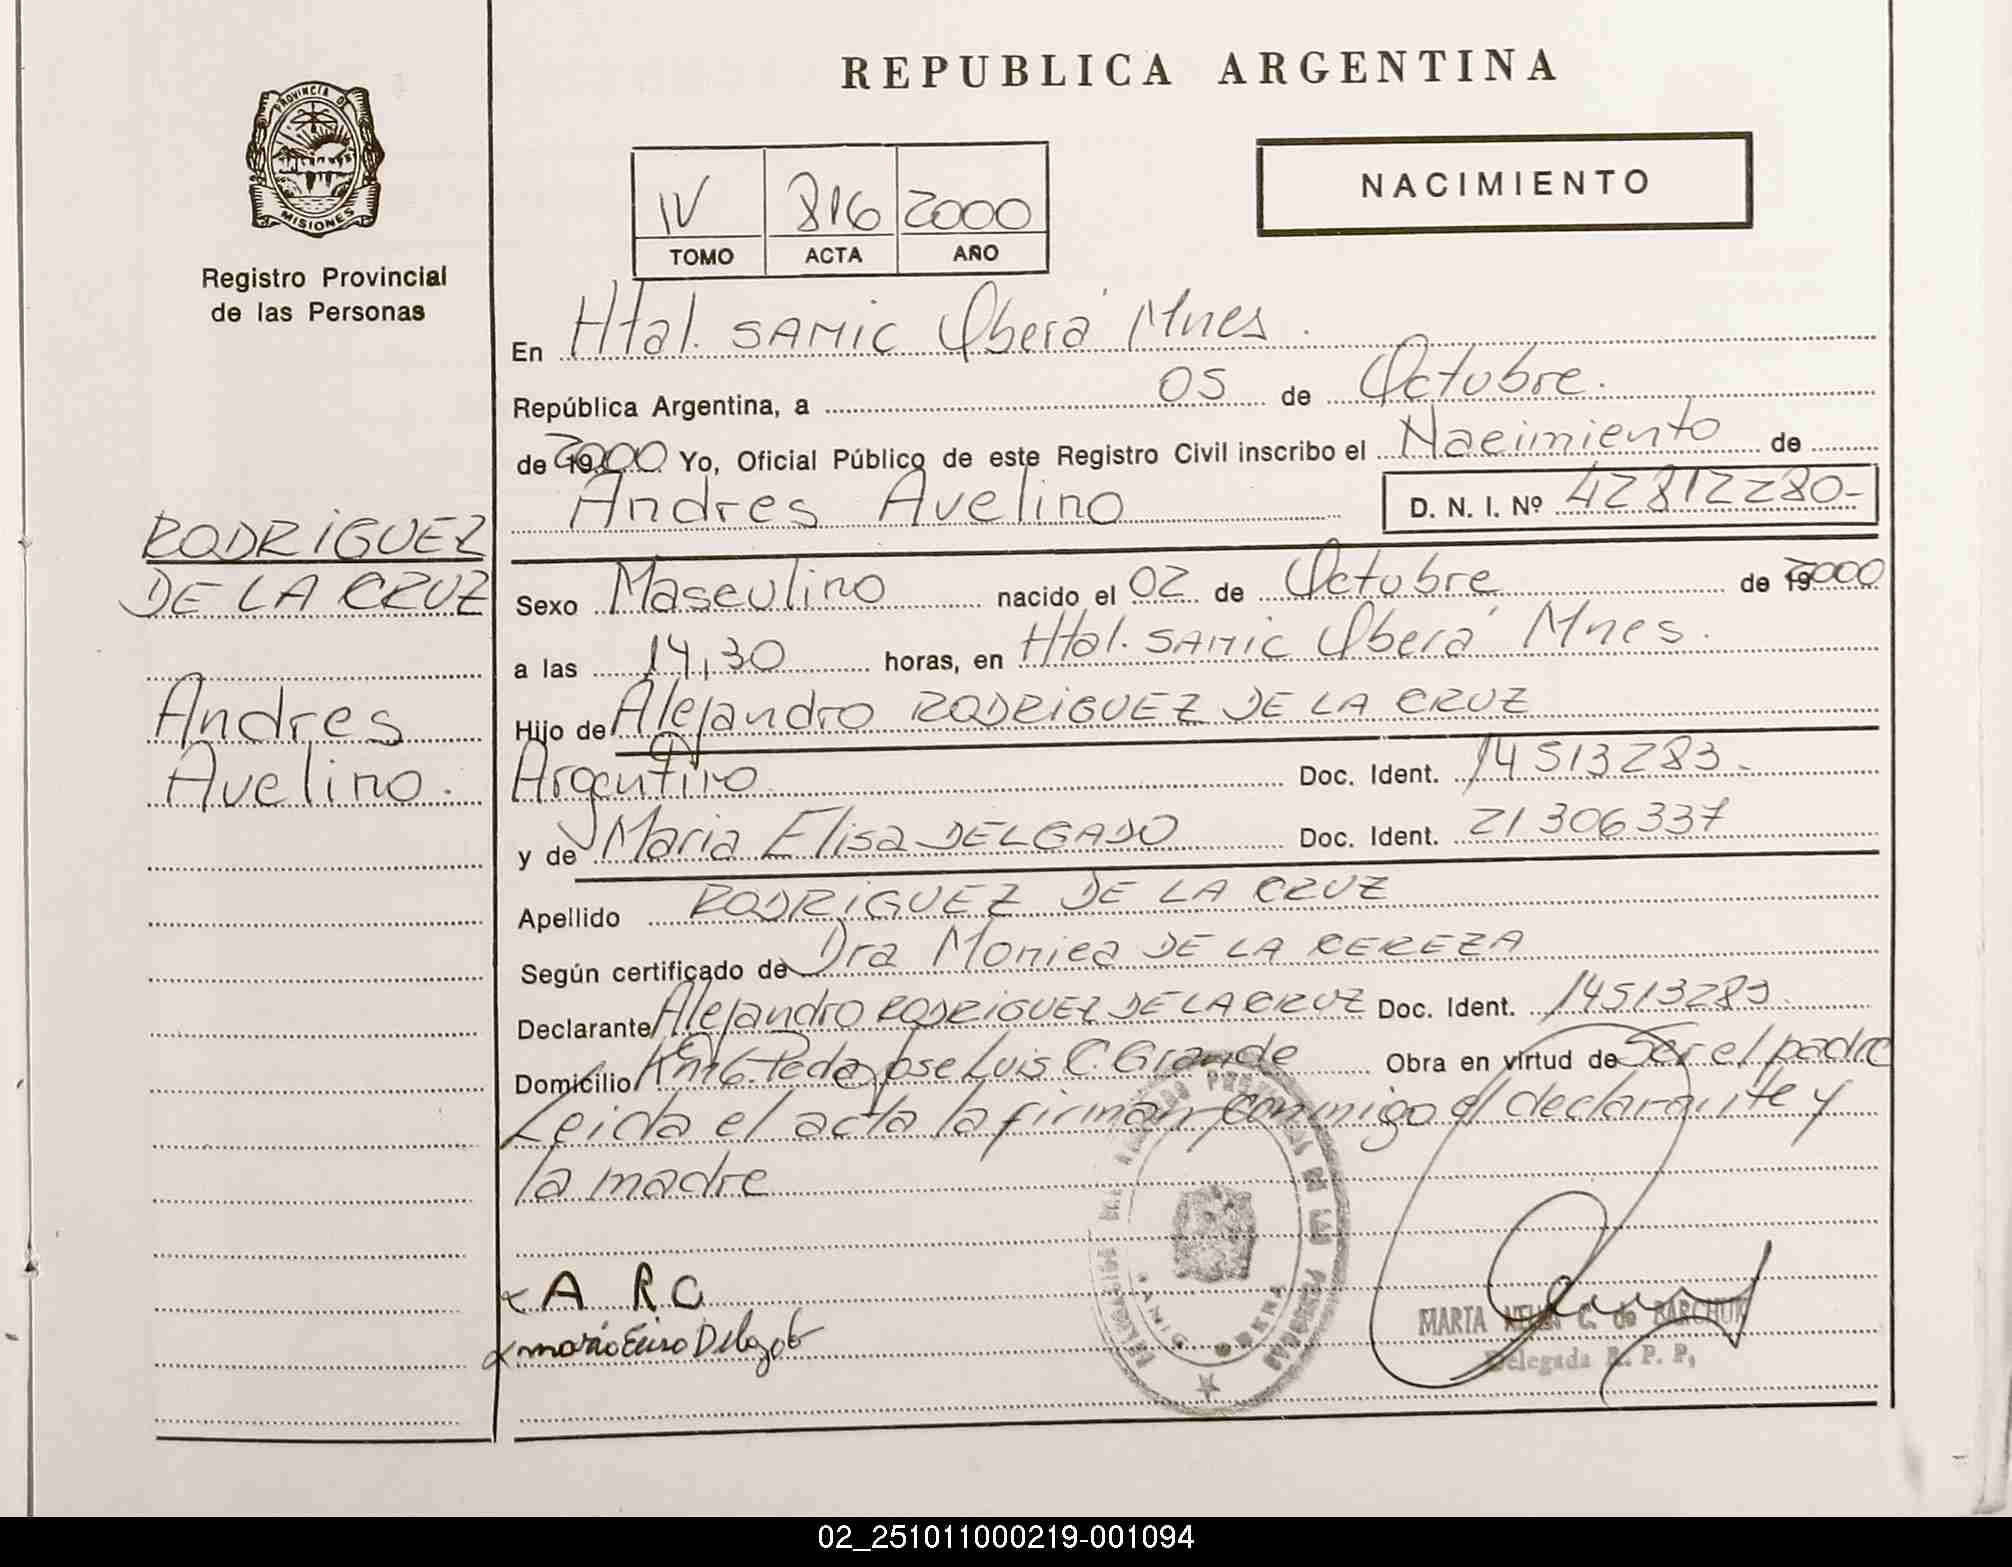 PROVINCIA DE
MISIONES
Registro Provincial
de las Personas
RODRIGUEZ
DE LA CRUZ
Andres
Avelino.
REPUBLICA ARGENTINA
IV 816 2000
TOMO ACTA AÑO
NACIMIENTO
En Htal. SAMIC Oberá Mnes.
República Argentina, a 05 de Octubre.
de 2000 Yo, Oficial Público de este Registro Civil inscribo el Nacimiento de
Andres Avelino D. N. I. Nº 42812280-
Sexo Masculino nacido el 02 de Octubre de 2000
a las 14,30 horas, en Htal. SAMIC Oberá Mnes.
Hijo de Alejandro RODRIGUEZ DE LA CRUZ
Argentino Doc. Ident. 14513283-
y de Maria Elisa DELGADO Doc. Ident. 21306337
Apellido RODRIGUEZ DE LA CRUZ
Según certificado de Dra Monica DE LA CEREZA
Declarante Alejandro RODRIGUEZ DE LA CRUZ Doc. Ident. 14513283.
Domicilio Km 6. Pcda Jose Luis C. Grande Obra en virtud de Ser el padre
Leida el acta la firman conmigo el declarante y
la madre
A R C
MARTA C. de BARCHUK
Delegada R. P. P.
OBERA
02_251011000219-001094